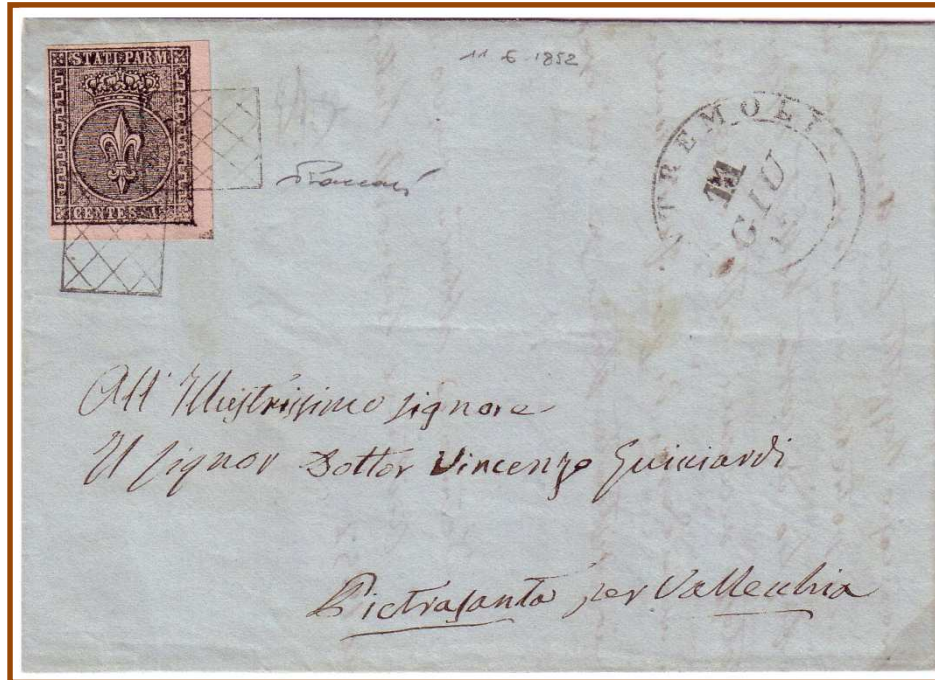 STATI PARM
CENTES.
11 6 1852
TREMOLI
11
GIU
All' Illustrissimo Signore
Il Signor Dottor Vincenzo Guicciardi
Pietrasanta per Vallecchia